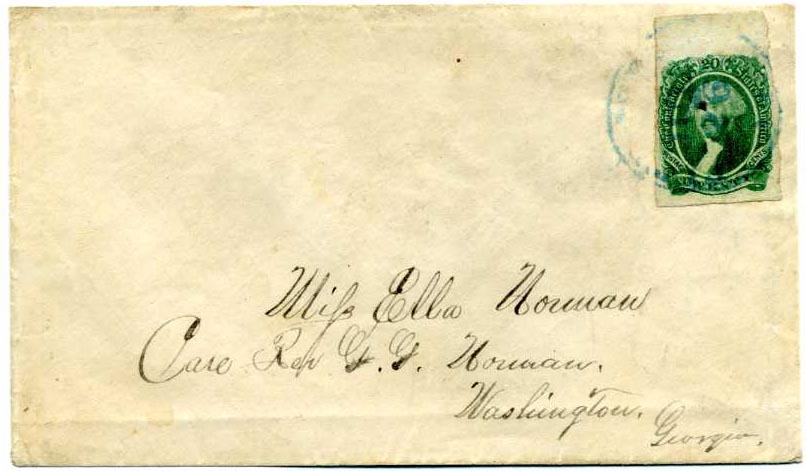 The Confederate 20 States of America
TWENTY
Miss Ella Norman
Care Rev G. G. Norman.
Washington.
Georgia.